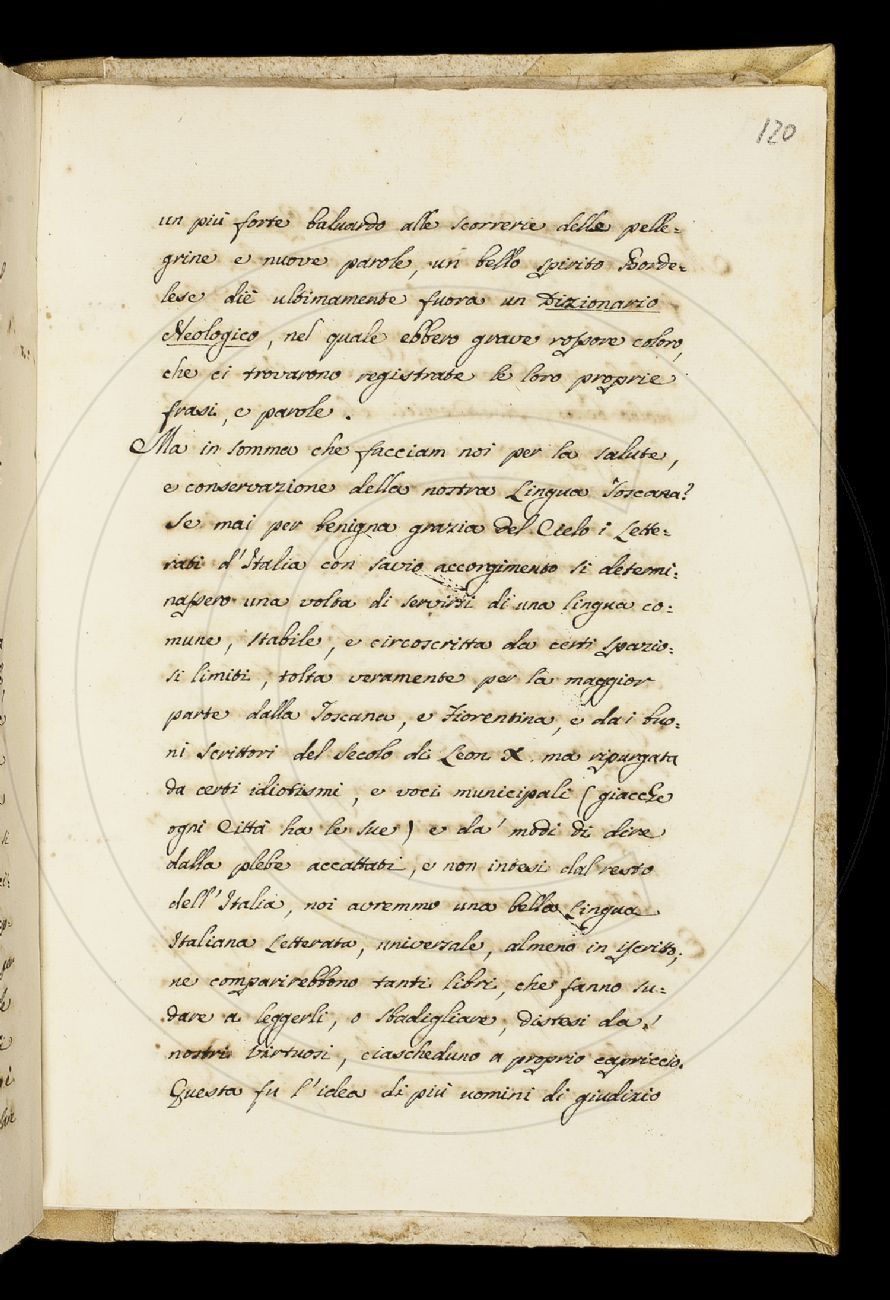 120
un più forte baluardo alle scorrerie delle pelle=
grine e nuove parole, un bello spirito Borde=
lese diè ultimamente fuora un Dizionario
Neologico, nel quale ebbero grave rossore coloro,
che ci trovarono registrate le loro proprie
frasi, e parole.
Ma in somma che facciam noi per la salute,
e conservazione della nostra Lingua Toscana?
Se mai per benigna grazia del Cielo i Lette=
rati d'Italia con savio accorgimento si determi=
nassero una volta di servirsi di una lingua co=
mune, stabile, e circoscritta da certi spazio=
si limiti, tolta veramente per la maggior
parte dalla Toscana, e Fiorentina, e dai buo=
ni Scrittori del Secolo di Leon X. ma ripurgata
da certi idiotismi, e voci municipali (giacchè
ogni Città ha le sue) e da' modi di dire
dalla plebe accattati, e non intesi dal resto
dell'Italia, noi avremmo una bella Lingua
Italiana Letterata, universale, almeno in iscritto;
ne comparirebbono tanti libri, che fanno su=
dare a leggerli, o sbadigliare, distesi da'
nostri Virtuosi, ciascheduno a proprio capriccio.
Questa fu l'idea di più uomini di giudizio